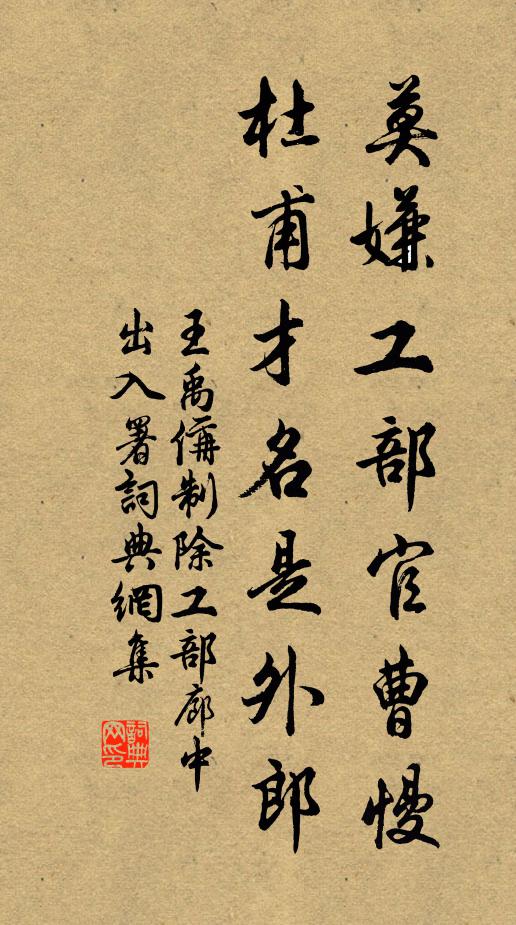 莫嫌工部官曹慢
杜甫才名是外郎
王禹偁制除工部廊中
出入署詞典網集
詞典网印